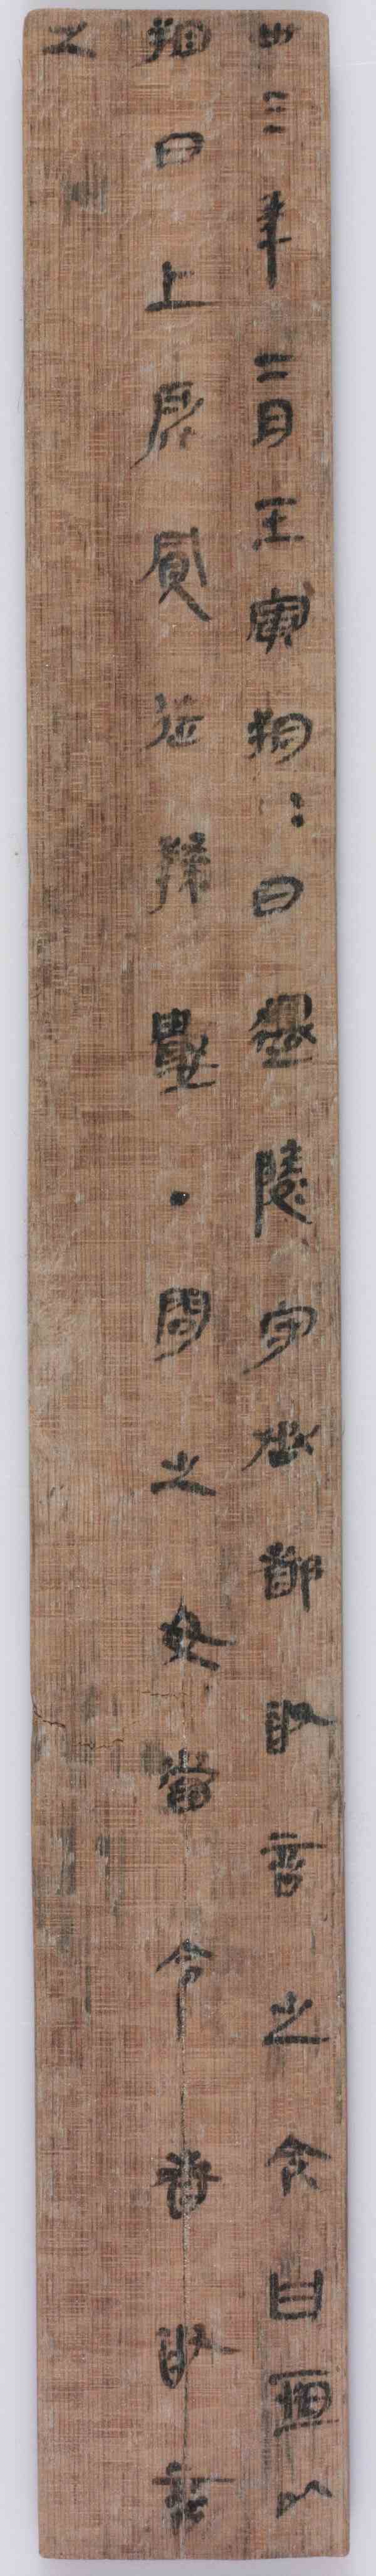 卅三年二月壬寅朔〓日遷陵守丞都敢言之令曰恒以
朔日上所買徒隸數・問之毋當令者敢言
之